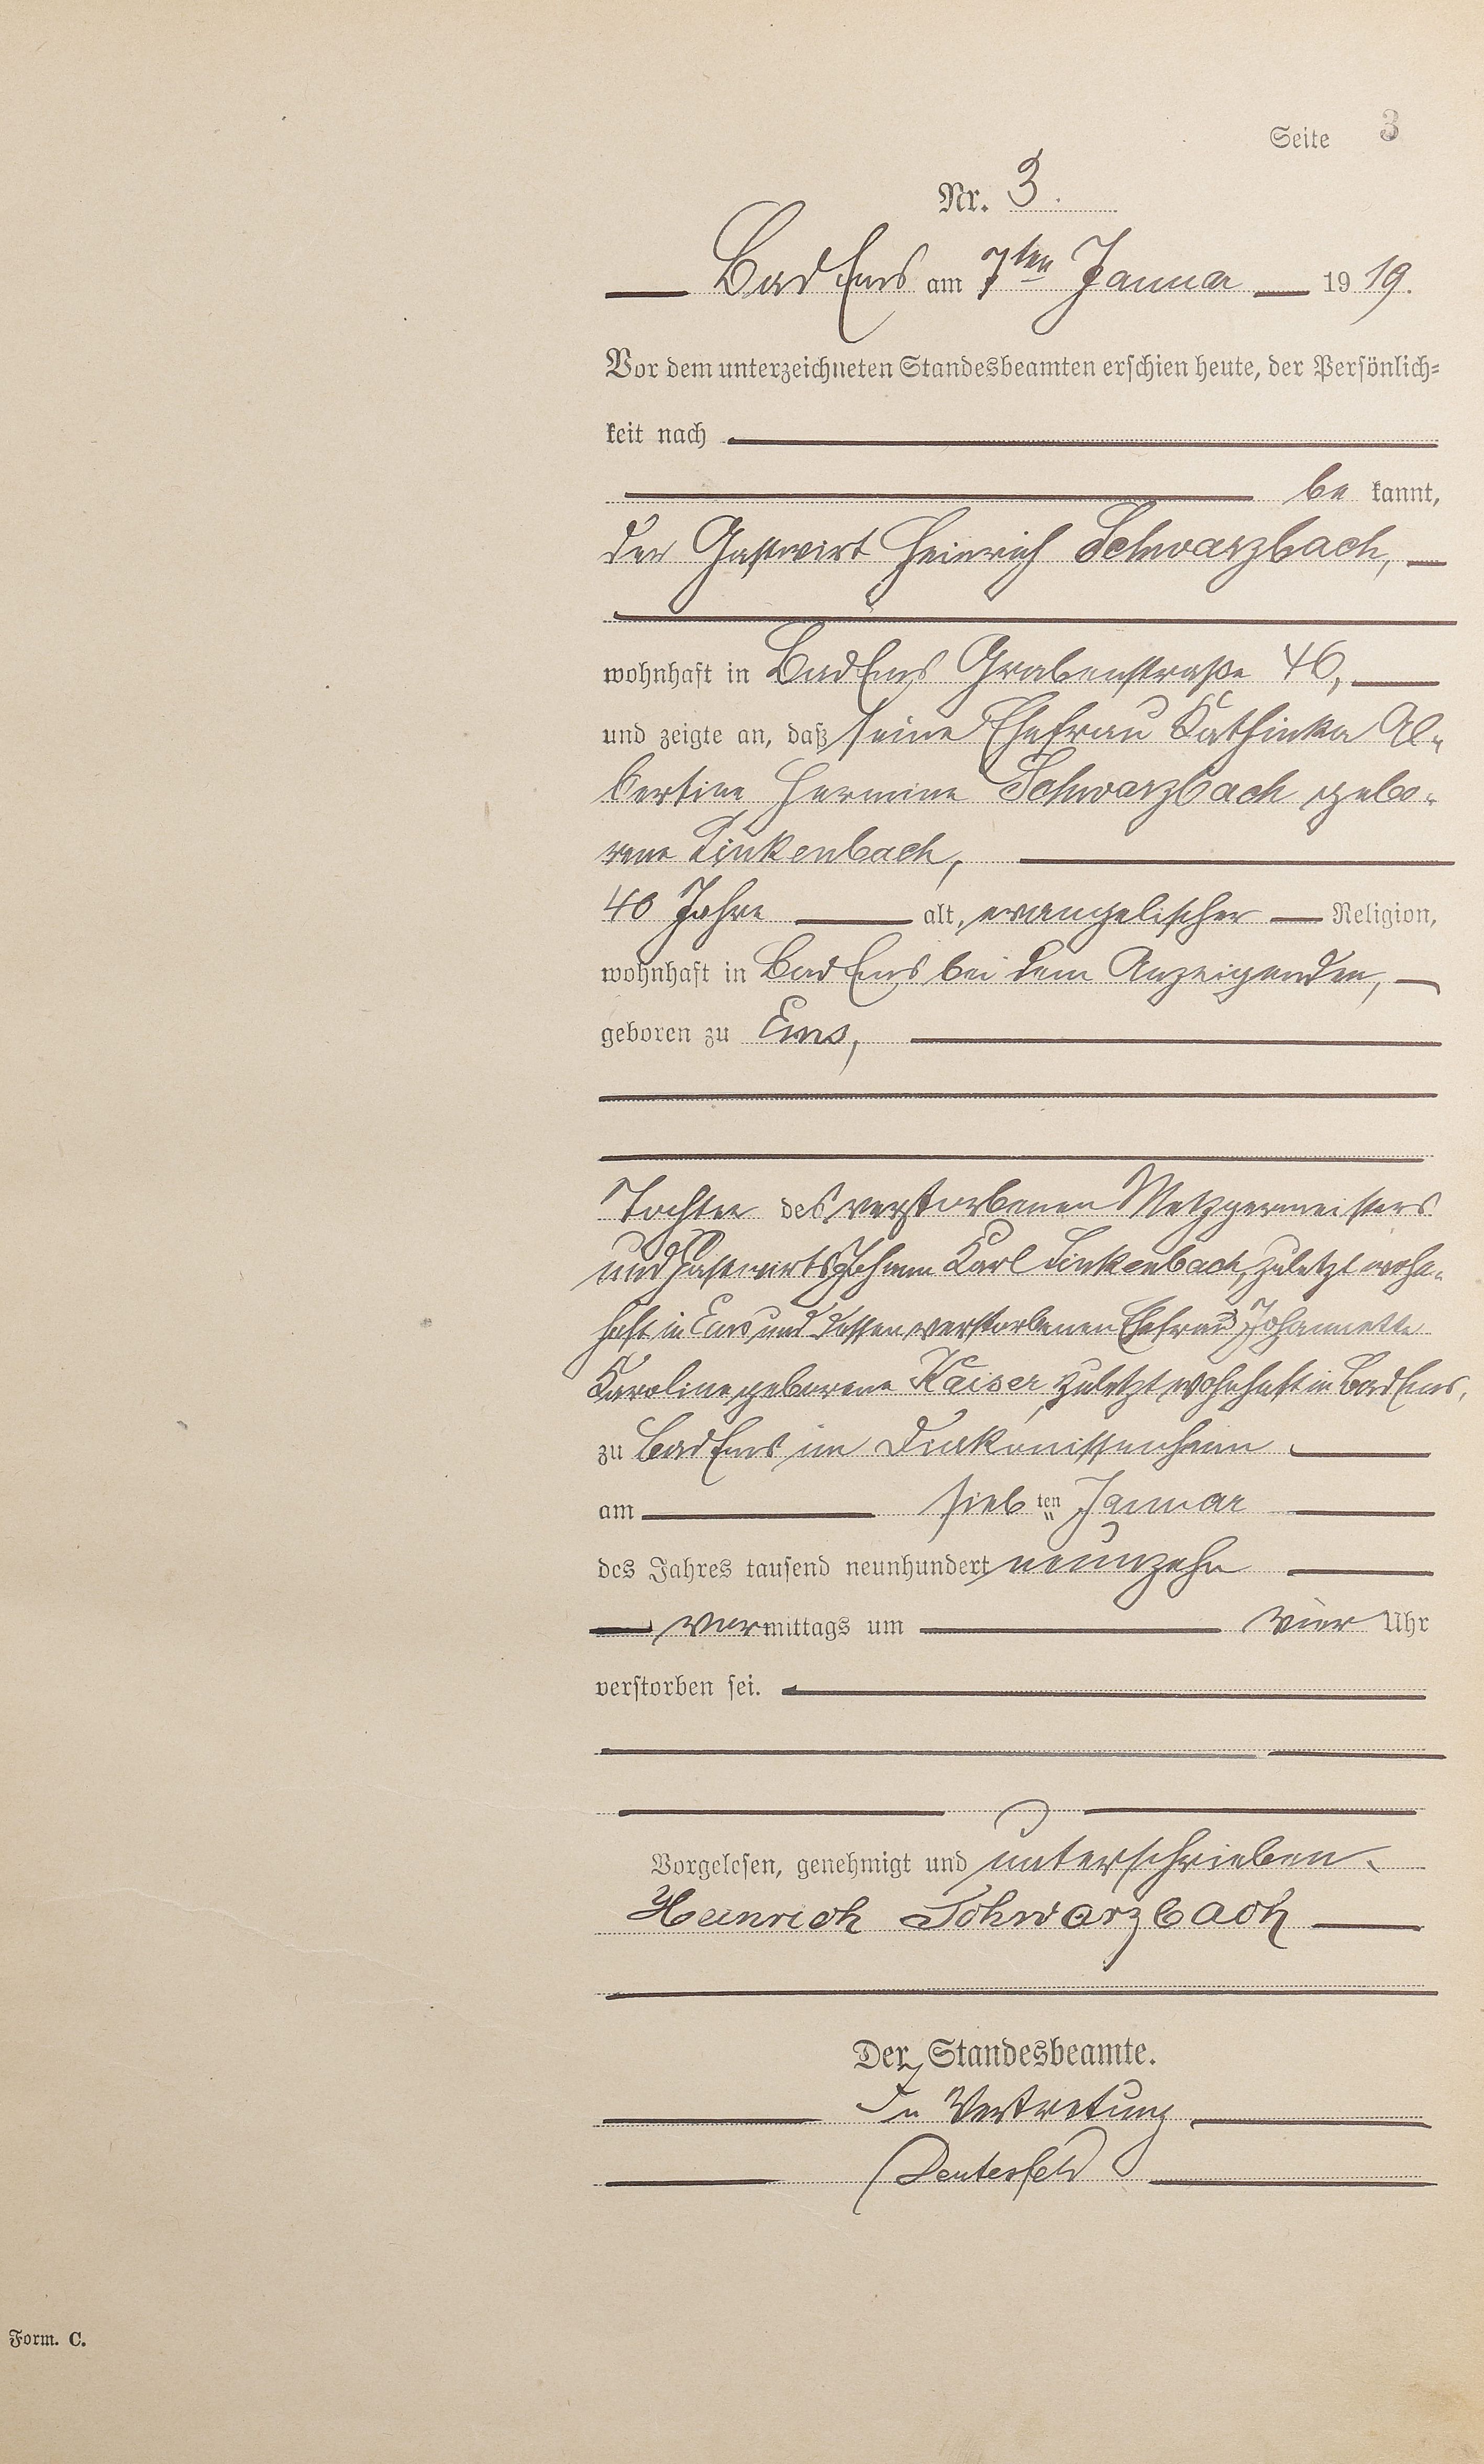 Seite 3
Nr. 3.
Bad Ems am 7ten Januar 1919.
Vor dem unterzeichneten Standesbeamten erschien heute, der Persönlich-
keit nach
be kannt,
der Gastwirt Heinrich Schwarzbach,
wohnhaft in Bad Ems Grabenstraße 46,
und zeigte an, daß seine Ehefrau Kathinka Al-
bertine Hermine Schwarzbach gebo-
rene Linkenbach,
40 Jahre alt, evangelischer Religion,
wohnhaft in Bad Ems bei dem Anzeigenden,
geboren zu Ems,
Tochter des verstorbenen Metzgermeisters
und Gastwirts Johann Karl Linkenbach, zuletzt wohn-
haft in Ems und dessen verstorbenen Ehefrau Johannette
Karoline geborene Kaiser, zuletzt wohnhaft in Bad Ems,
zu Bad Ems im Diakonissenheim
am sieb ten Januar
des Jahres tausend neunhundert neunzehn
vormittags um vier Uhr
verstorben sei.
Vorgelesen, genehmigt und unterschrieben.
Heinrich Schwarzbach
Der Standesbeamte.
In Vertretung
Form. C.